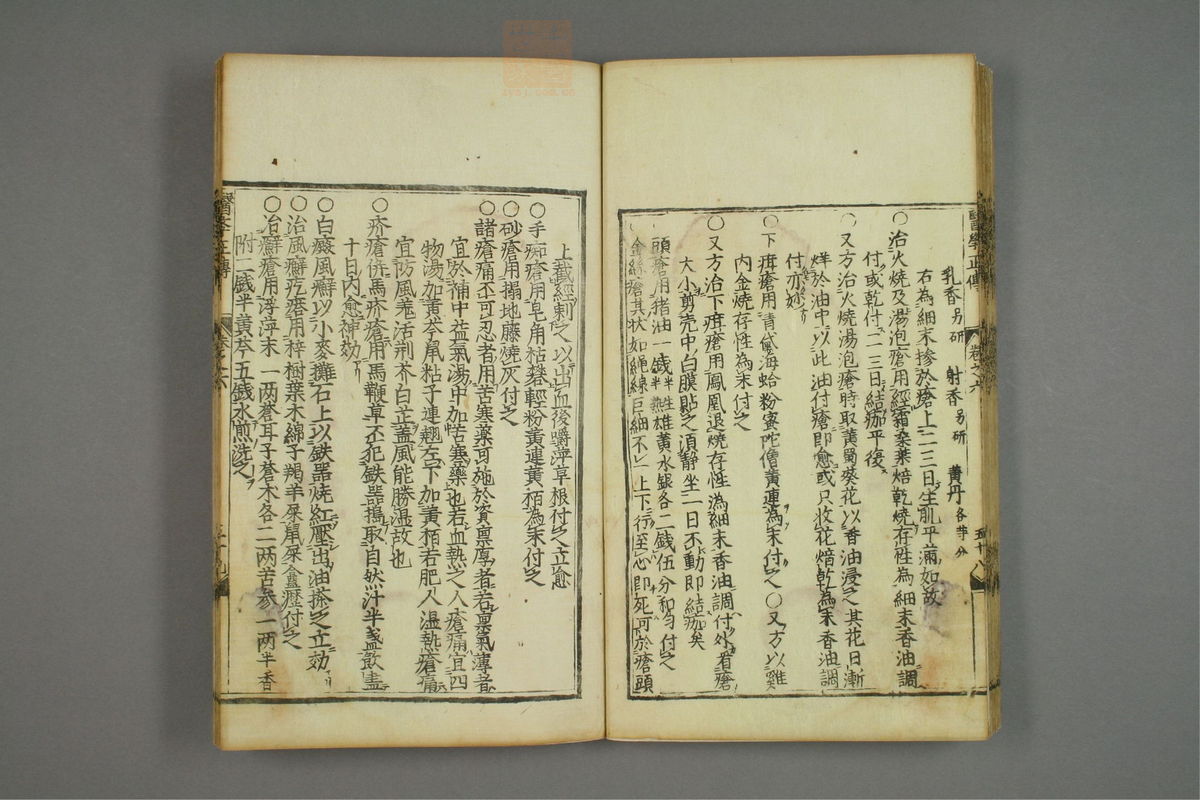 醫學正傳 卷之六 五十八
乳香另研 射香另研 黄丹各等分
右為細末摻於瘡上二三日生肌平滿如故
○治火燒及湯泡瘡用經霜桑葉焙乾燒存性為細末香油調
付或乾付二三日結痂平復
○又方治火燒湯泡瘡時取黄蜀葵花以香油浸之其花日漸
烊於油中以此油付瘡即愈或只收花焙乾為末香油調
付亦妙
○下疳瘡用青黛海蛤粉蜜陀僧黄連為末付之○又方以雞
内金燒存性為末付之
○又方治下疳瘡用鳳凰退燒存性為細末香油調付外看瘡
大小剪壳中白膜貼之湏靜坐一日不動即結痂矣
頭瘡用猪油一錢半生半熟雄黄水銀各二錢伍分和匀付之
金絲瘡其状如繩線巨細不一上下行至心即死可於瘡頭
上截經刺之以出血後嚼萍草根付之立愈
○手痴瘡用皂角枯礬輕粉黄連黄栢為末付之
○砂瘡用搨地藤燒灰付之
○諸瘡痛不可忍者用苦寒藥可施於資禀厚者若禀氣薄者
宜於補中益氣湯中加苦寒藥也若血熱之人瘡痛宜四
物湯加黄芩鼠粘子連翹在下加黄栢若肥人温熱瘡痛
宜防風羗活荆芥白芷盖風能勝温故也
○疥瘡併馬疥瘡用馬鞭草不犯鉄器搗取自然汁半盞飲盡
十日内愈神効
○白癜風癬以小麥攤石上以鉄器燒紅壓出油搽之立効
○治風癬疙瘩用梓樹葉木綿子羯羊屎鼠屎盦瀝付之
○治癬瘡用浮萍末一两蒼耳子蒼木各二两苦參一两半香
附二錢半黄芩五錢水煎洗之
醫學正傳 卷之六 五十九